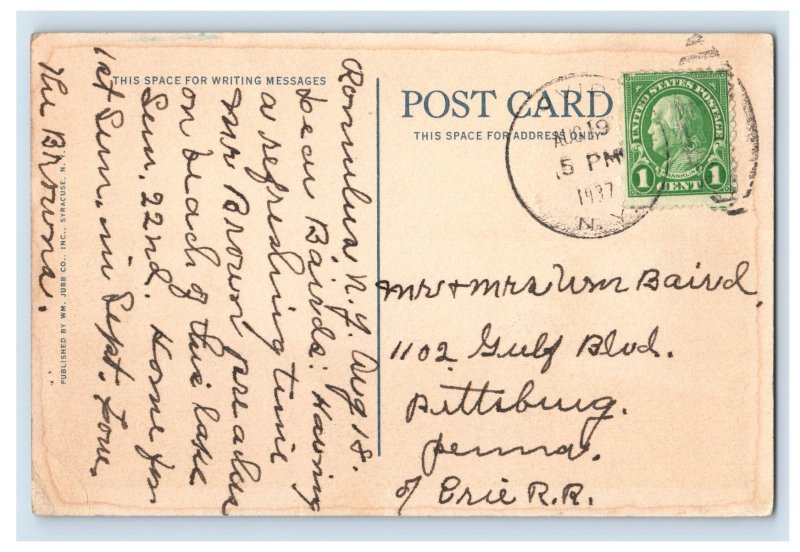 THIS SPACE FOR WRITING MESSAGES
Romulus N.Y. Aug 18.
Dear Bairds: Having
a refreshing time
Mr Brown preaches
on beach of this lake
Sun. 22nd. Home for
1st Sun. in Sept. Love,
The Browns.
PUBLISHED BY WM. JUBB CO., INC., SYRACUSE, N. Y.
POST CARD
THIS SPACE FOR ADDRESS ONLY
AUG 19
5 PM
1937
N.Y.
UNITED STATES POSTAGE
FRANKLIN
1 CENT 1
Mr + Mrs Wm Baird,
1102 Gulf Blvd.
Pittsburg.
Penna.
Erie R.R.